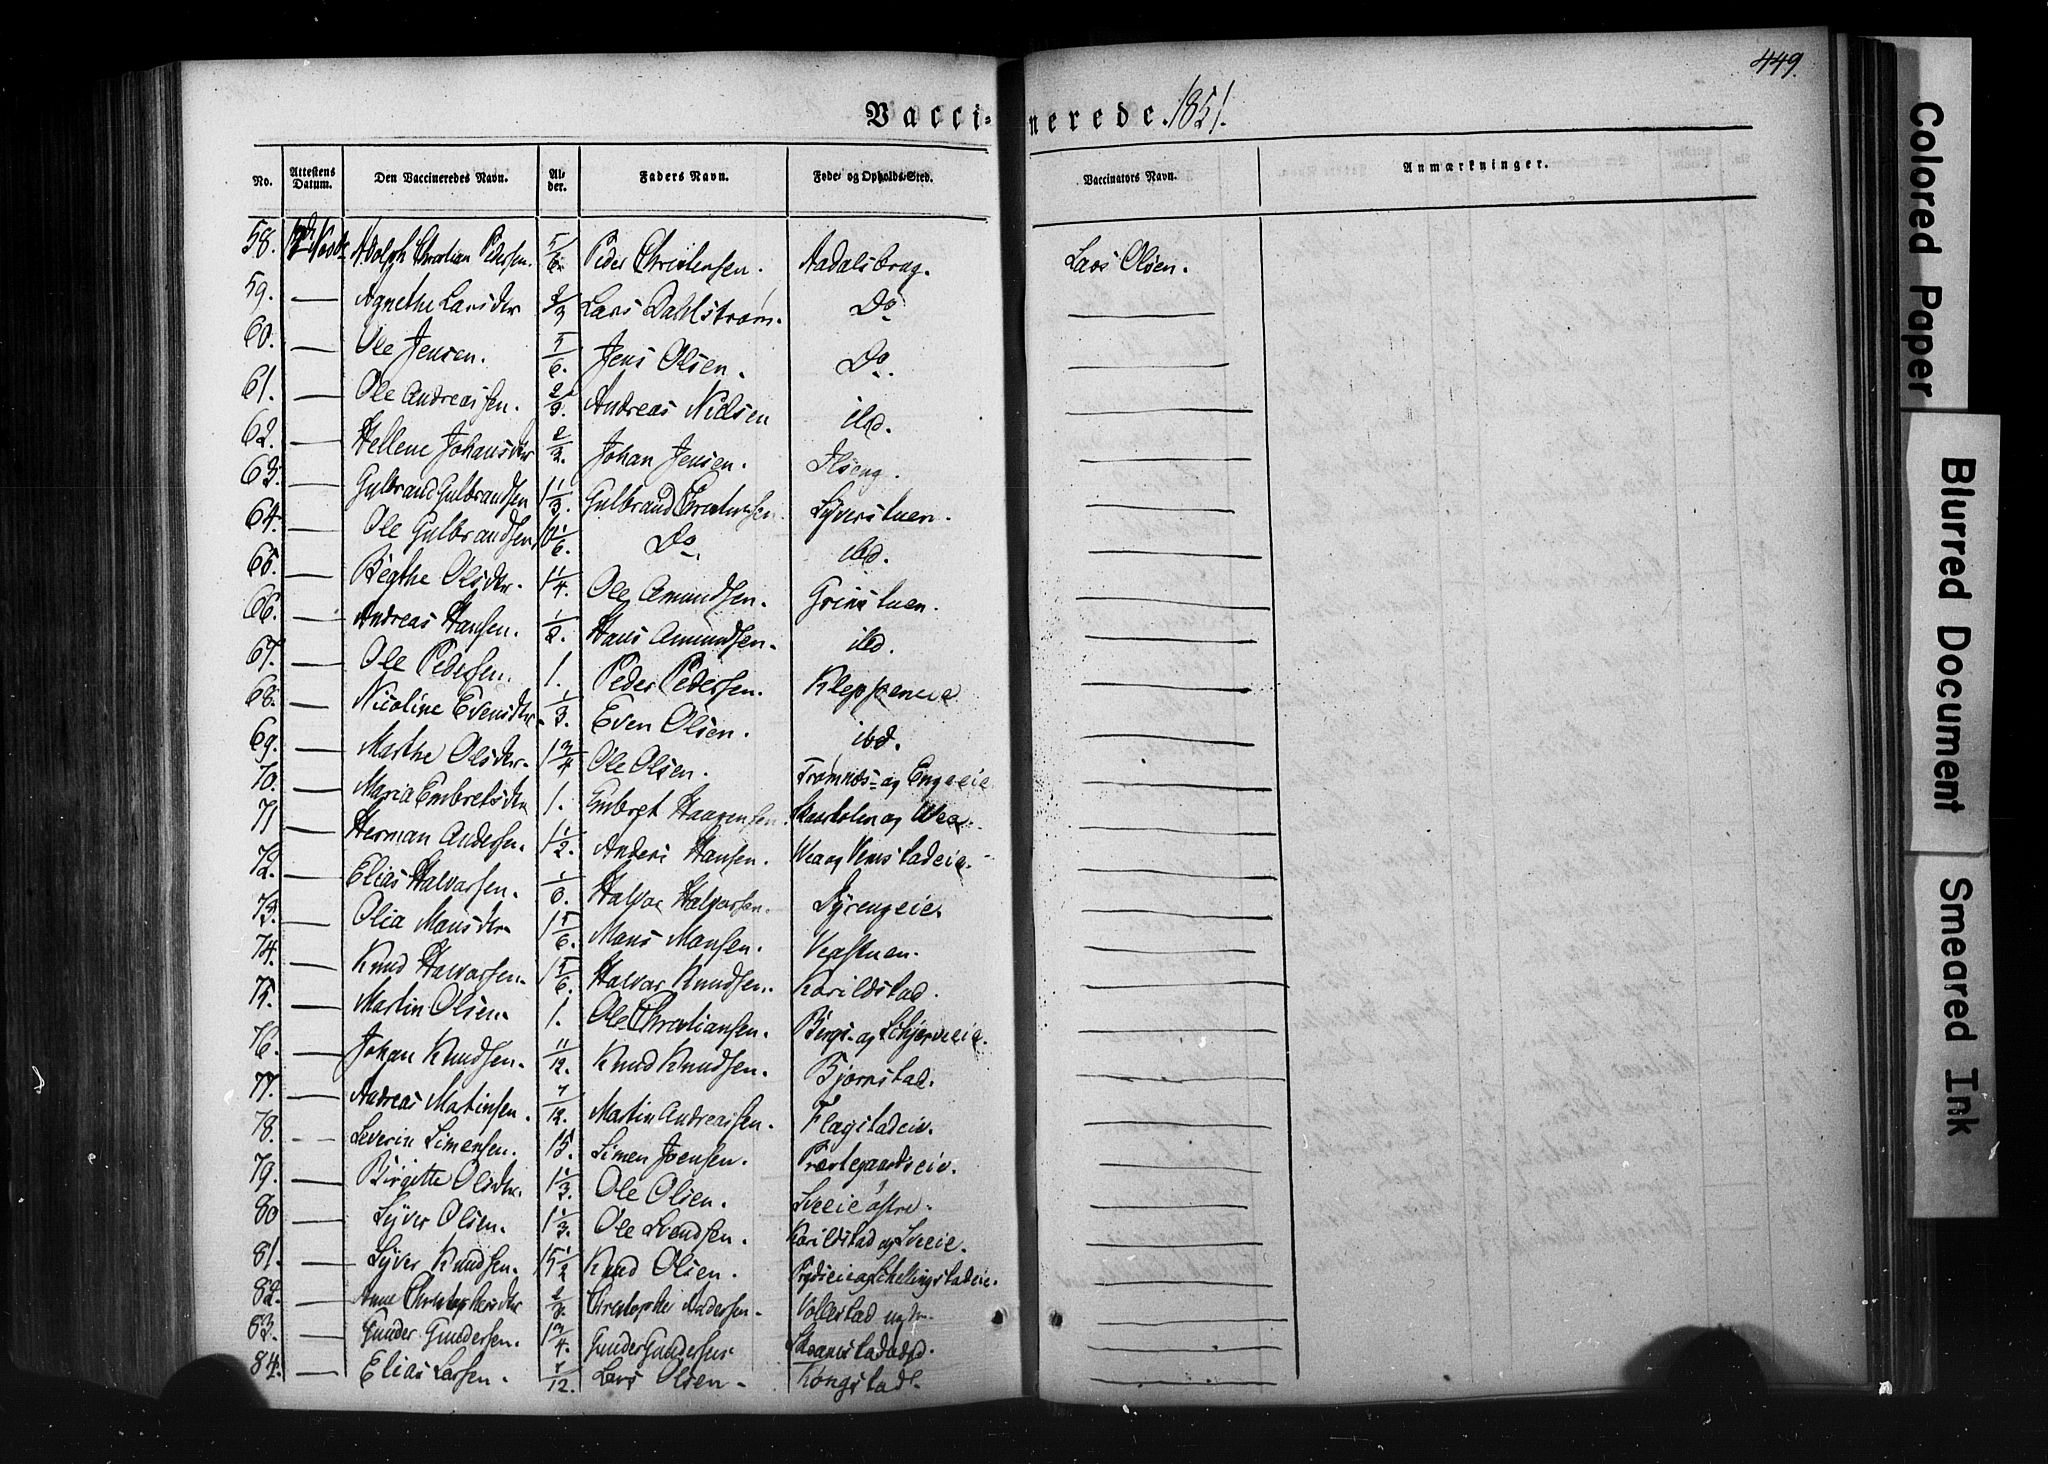 449.
Vaccinerede. 1851.
No. Attestens Datum. Den Vaccineredes Navn. Alder. Faders Navn. Føde- og Opholds-Sted. Vaccinators Navn. Anmærkninger.
58. Adolph Christian Pedersen. 5/6. Peder Christensen. Aadalsbrug. Lars Olsen.
59. — Agnethe Larsdtr 2/3 Lars Dahlstrøm. Do —
60. — Ole Jensen. 5/6. Jens Olsen. Do. —
61. — Ole Andreassen. 2/3. Andreas Nielsen ibd. —
62. — Hellene Johansdtr Johan Jensen. Ilseng. —
63. — Gulbrand Gulbrandsen 1 1/3. Gulbrand Syverstuen. —
64. — Ole Gulbrandsen Do. ibd. —
65. — Olsdtr. 1 1/4. Ole Amundsen. Grinstuen. —
66. — Andreas Hansen. 1/2. Hans Amundsen. ibd. —
67. — Ole Pedersen. 1. Peder Pedersen. Kleppeneie —
68. — Nicoline Evensdtr. 1/3. Even Olsen. ibd. —
69. — Marthe Olsdtr. 1 3/4 Ole Olsen. Frømnæs- og Engeeie —
70. — Maria Embretsdtr 1. Embret Haagensen. og Wea. —
71 — Herman Andersen. 1 1/2. Anders Hansen. Wea og Venstadeie. —
72. — Elias Halvorsen. Halvor Halvorsen. Dyrengeie. —
73. — Olia Mansdtr. 1 5/6. Mans Mansen. Veastuen. —
74. — Knud Halvorsen. 1 5/6. Halvor Knudsen. Karildstad. —
75. — Martin Olsen. 1. Ole Christiansen. Bergs- og Schjerveeie. —
76. — Johan Knudsen. 11/12. Knud Knudsen. Bjørnstad. —
77. — Andreas Martinsen. 7/12. Martin Andreassen. Flagstadeie. —
78. — Severin Simensen. 15. Simen Joensen. Præstegaardseie. —
79. — Birgitte Olsdtr. 1 1/3. Ole Olsen. Sveeie østre. —
80 — Syver Olsen. 1 1/3. Ole Svendsen. Karildstad og Sveeie. —
81. — Syver Knudsen. 15 1/2 Knud Olsen. —
82. — Anne Christophersdtr 2/3. Christopher Andersen. Vollestad —
83. — Gunder Gundersen. 1 3/4. Gunder Gundersen —
84. — Elias Larsen. 7/12. Lars Olsen. Kongstad —
Colored Paper
Blurred Document
Smeared Ink